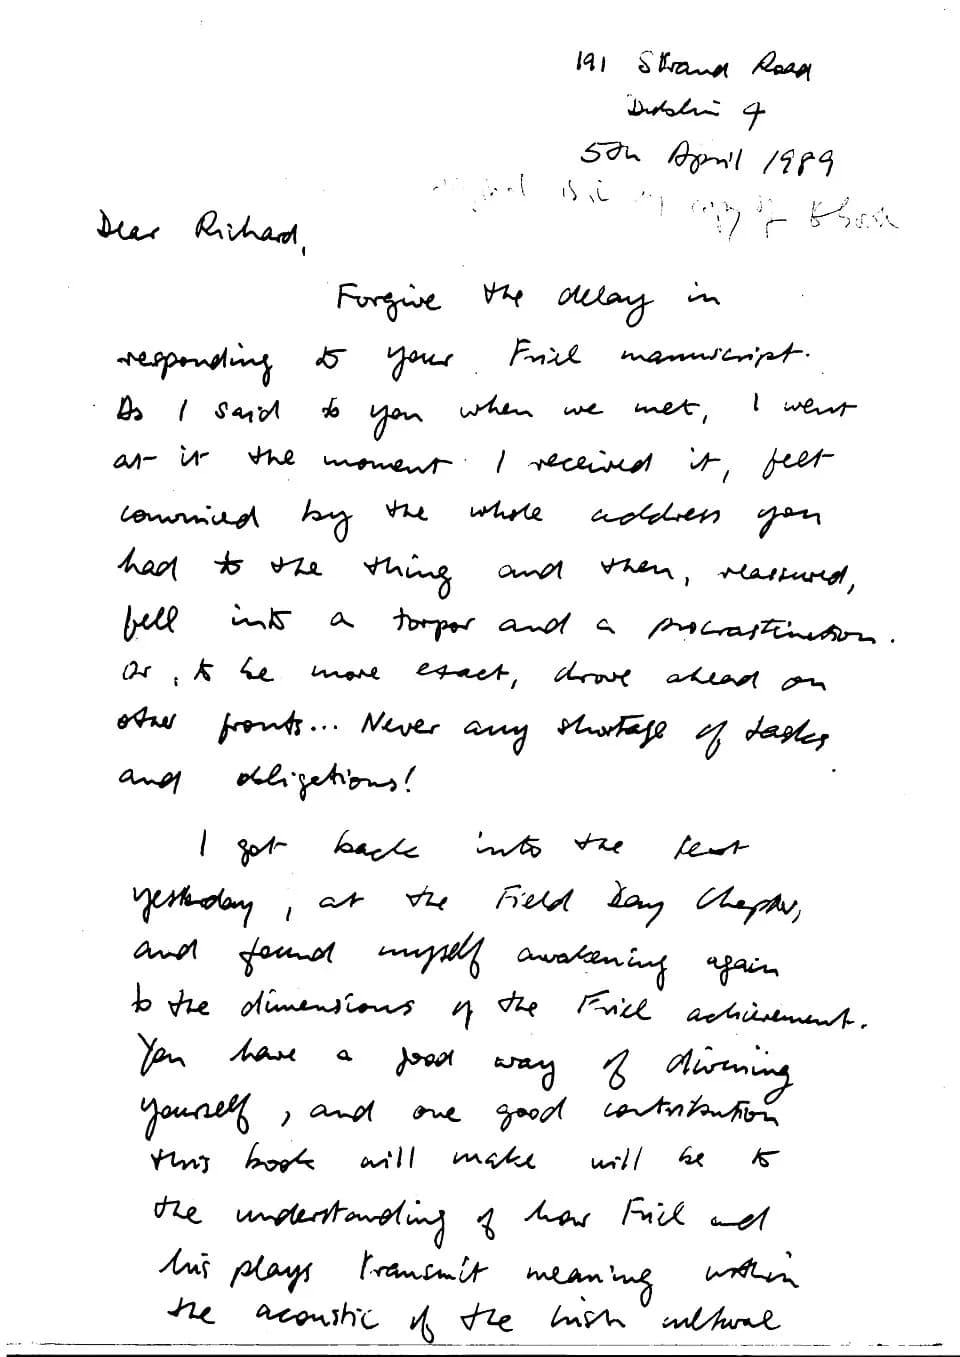 191 Strand Road
Dublin 4
5th April 1989
original is in my copy of
Dear Richard,
Forgive the delay in
responding to your Friel manuscript.
As I said to you when we met, I went
at it the moment I received it, felt
convinced by the whole address you
had to the thing and then, reassured,
fell into a torpor and a procrastination.
Or, to be more exact, drove ahead on
other fronts... Never any shortage of tasks
and obligations!
I got back into the text
yesterday, at the Field Day Chapter,
and found myself awakening again
to the dimensions of the Friel achievement.
You have a good way of divining
yourself, and one good contribution
this book will make will be to
the understanding of how Friel and
his plays transmit meaning within
the acoustic of the Irish cultural